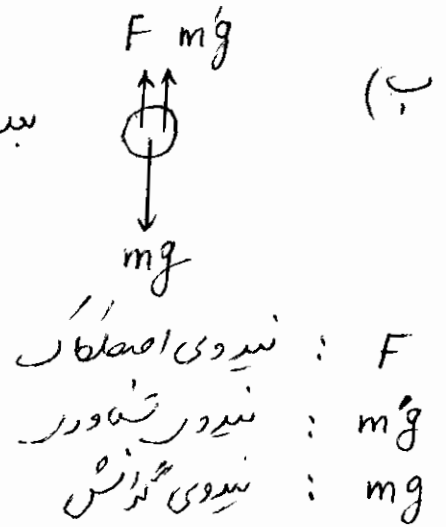 ب)
F m'g
mg
F : نیروی اصطکاک
m'g : نیروی شناوری
mg : نیروی گرانش